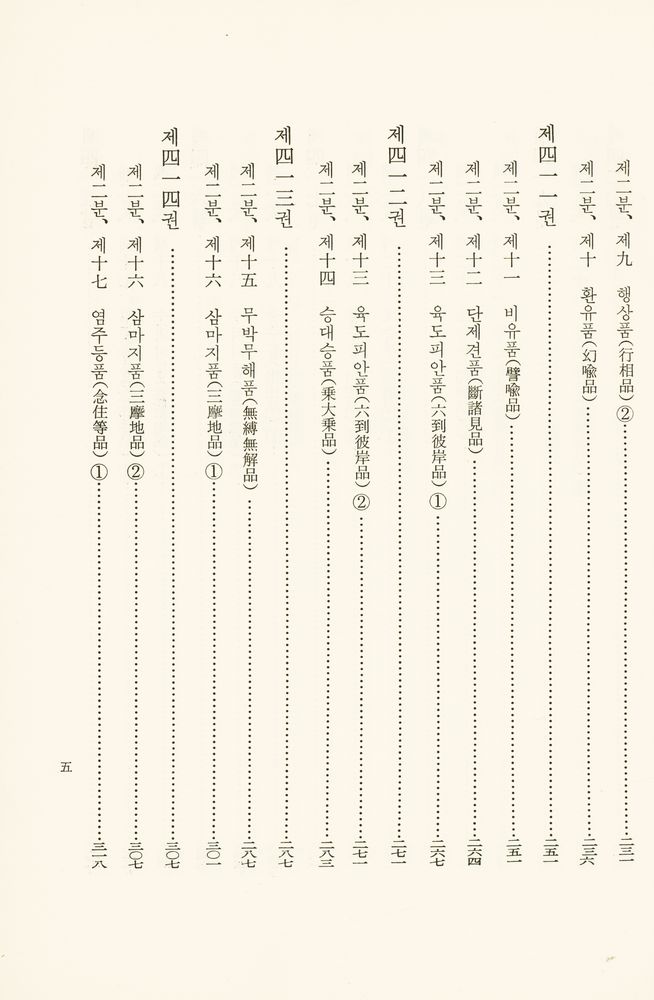 제二분、 제九 행상품(行相品)②……二三一
제二분、 제十 환유품(幻喩品)……二三六
제四一一권……二五一
제二분、 제十一 비유품(譬喩品)……二五一
제二분、 제十二 단제견품(斷諸見品)……二六四
제二분、 제十三 육도피안품(六到彼岸品)①……二六七
제四一二권……二七一
제二분、 제十三 육도피안품(六到彼岸品)②……二七一
제二분、 제十四 승대승품(乘大乘品)……二八三
제四一三권……二八七
제二분、 제十五 무박무해품(無縛無解品)……二八七
제二분、 제十六 삼마지품(三摩地品)①……三〇一
제四一四권……三〇七
제二분、 제十六 삼마지품(三摩地品)②……三〇七
제二분、 제十七 염주등품(念住等品)①……三一八
五